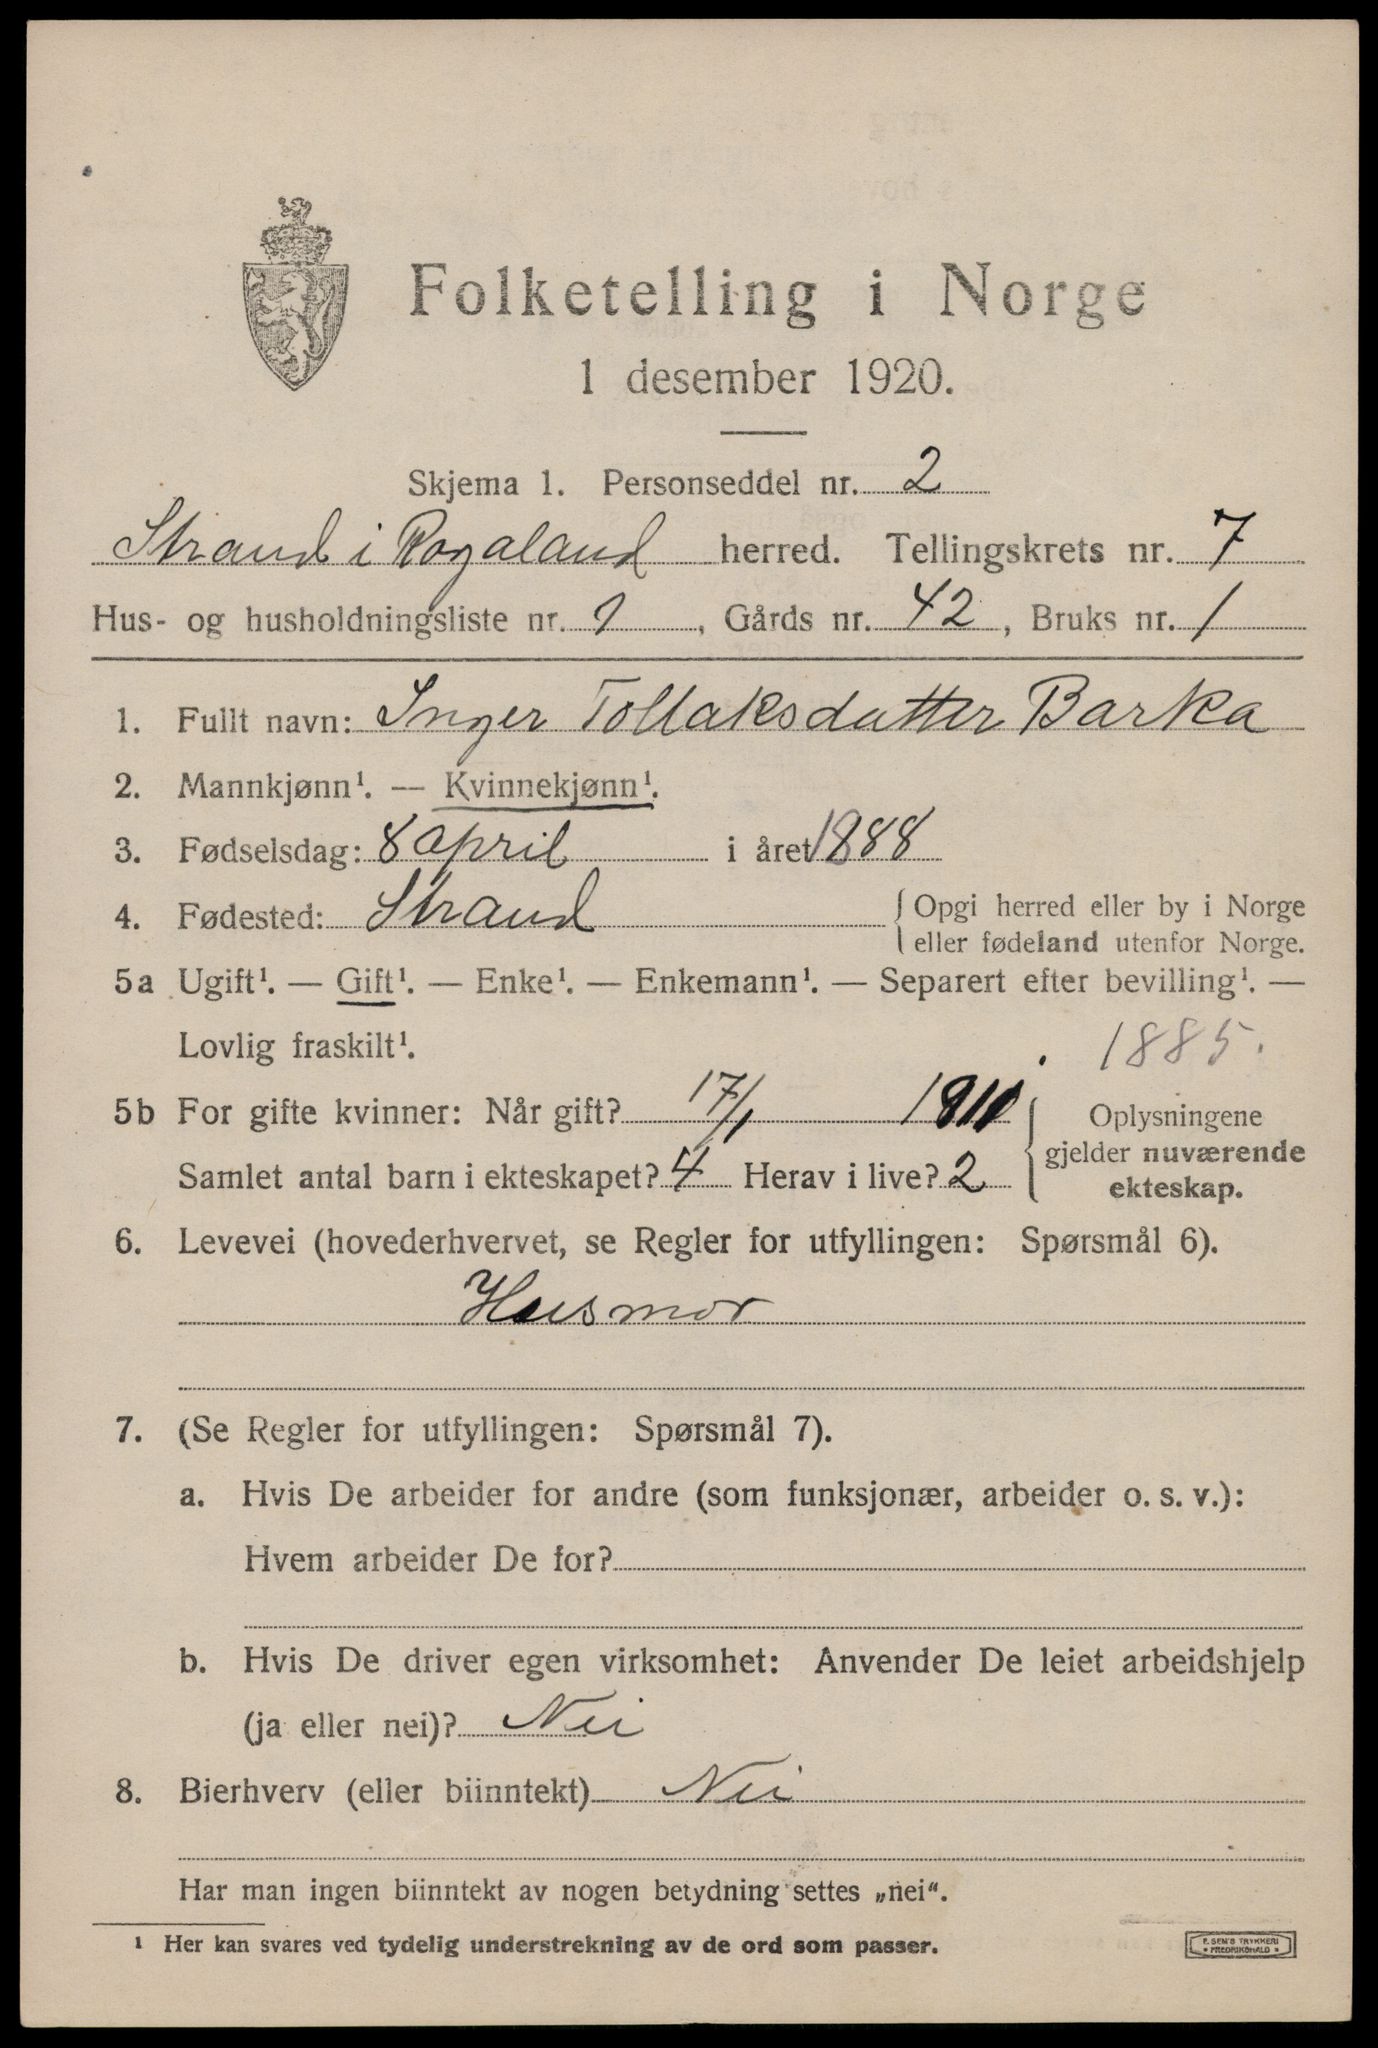 Folketelling i Norge
1 desember 1920.
Skjema 1. Personseddel nr. 2
Strand i Rogaland herred. Tellingskrets nr. 7
Hus- og husholdningsliste nr. 1, Gårds nr. 42, Bruks nr. 1
1. Fullt navn: Inger Tollaksdatter Barka
2. Mannkjønn¹. — Kvinnekjønn¹.
3. Fødselsdag: 8 april i året 1888
4. Fødested: Strand { Opgi herred eller by i Norge
eller fødeland utenfor Norge.
5a Ugift¹. — Gift¹. — Enke¹. — Enkemann¹. — Separert efter bevilling¹. —
Lovlig fraskilt¹. 1885.
5b For gifte kvinner: Når gift? 17/1 { Oplysningene
Samlet antal barn i ekteskapet? 4 Herav i live? 2 gjelder nuværende
ekteskap.
6. Levevei (hovederhvervet, se Regler for utfyllingen: Spørsmål 6).
Husmor
7. (Se Regler for utfyllingen: Spørsmål 7).
a. Hvis De arbeider for andre (som funksjonær, arbeider o. s. v.):
Hvem arbeider De for?
b. Hvis De driver egen virksomhet: Anvender De leiet arbeidshjelp
(ja eller nei)? Nei
8. Bierhverv (eller biinntekt) Nei
Har man ingen biinntekt av nogen betydning settes „nei“.
¹ Her kan svares ved tydelig understrekning av de ord som passer.
E. SEM'S TRYKKERI
• FREDRIKSHALD •